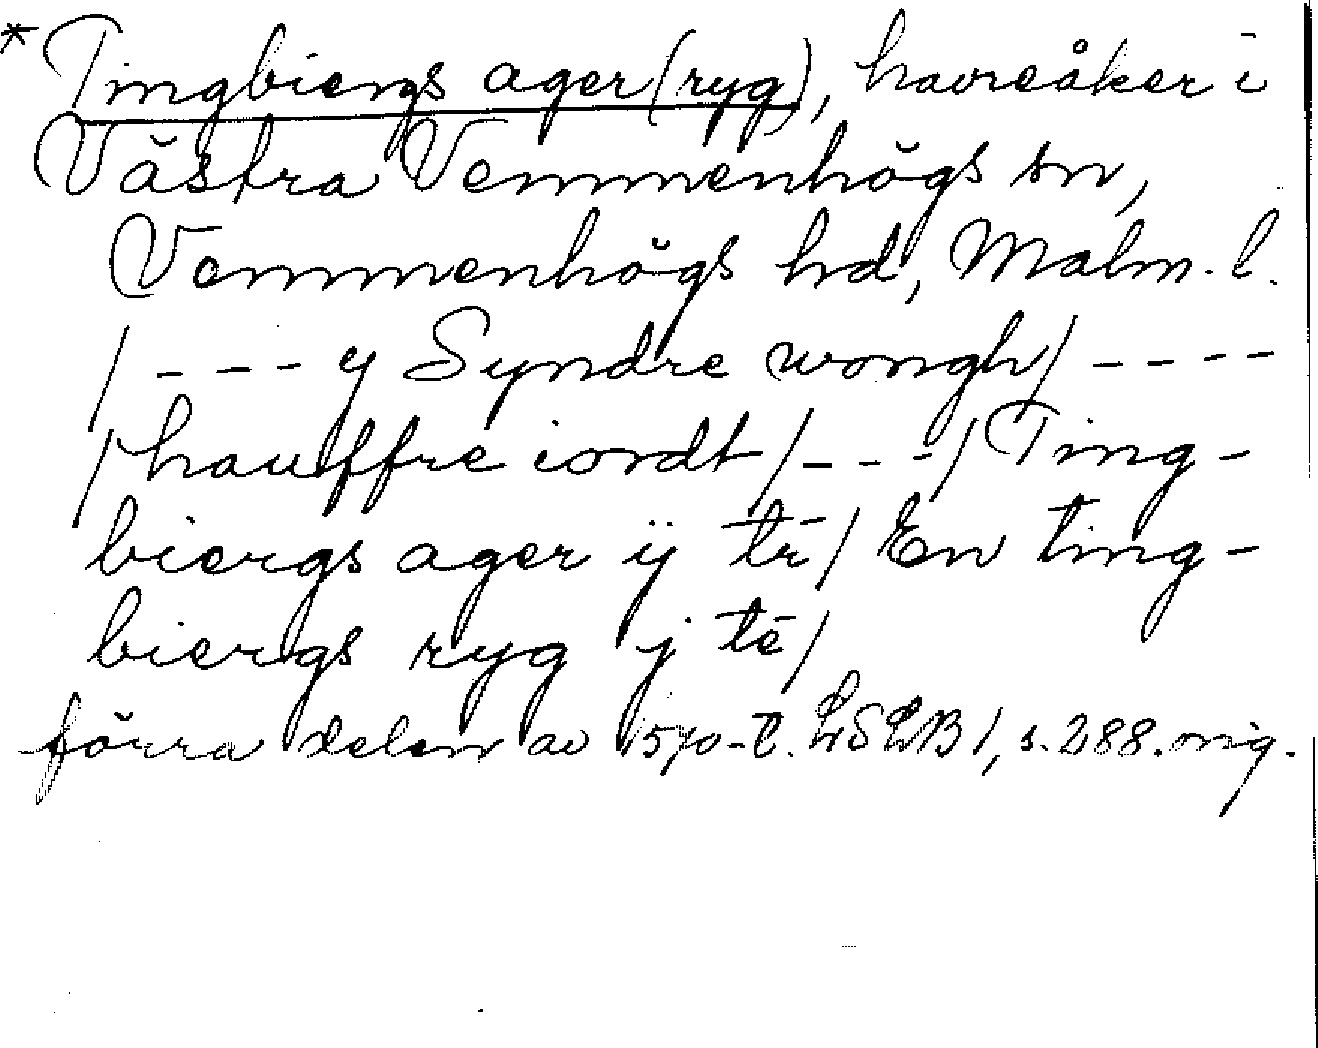 *Tingbiergs ager (ryg), havreåker i
Västra Vemmenhögs sn,
Vemmenhögs hd, Malm. l.
/ - - - y Syndre wongh/ - - - -
/hauffre iordt/ - - -/ Ting-
biergs ager ij tr̄/ En ting-
biergs ryg j tē/
förra delen av 1570-t. LSLB 1, s. 288. orig.